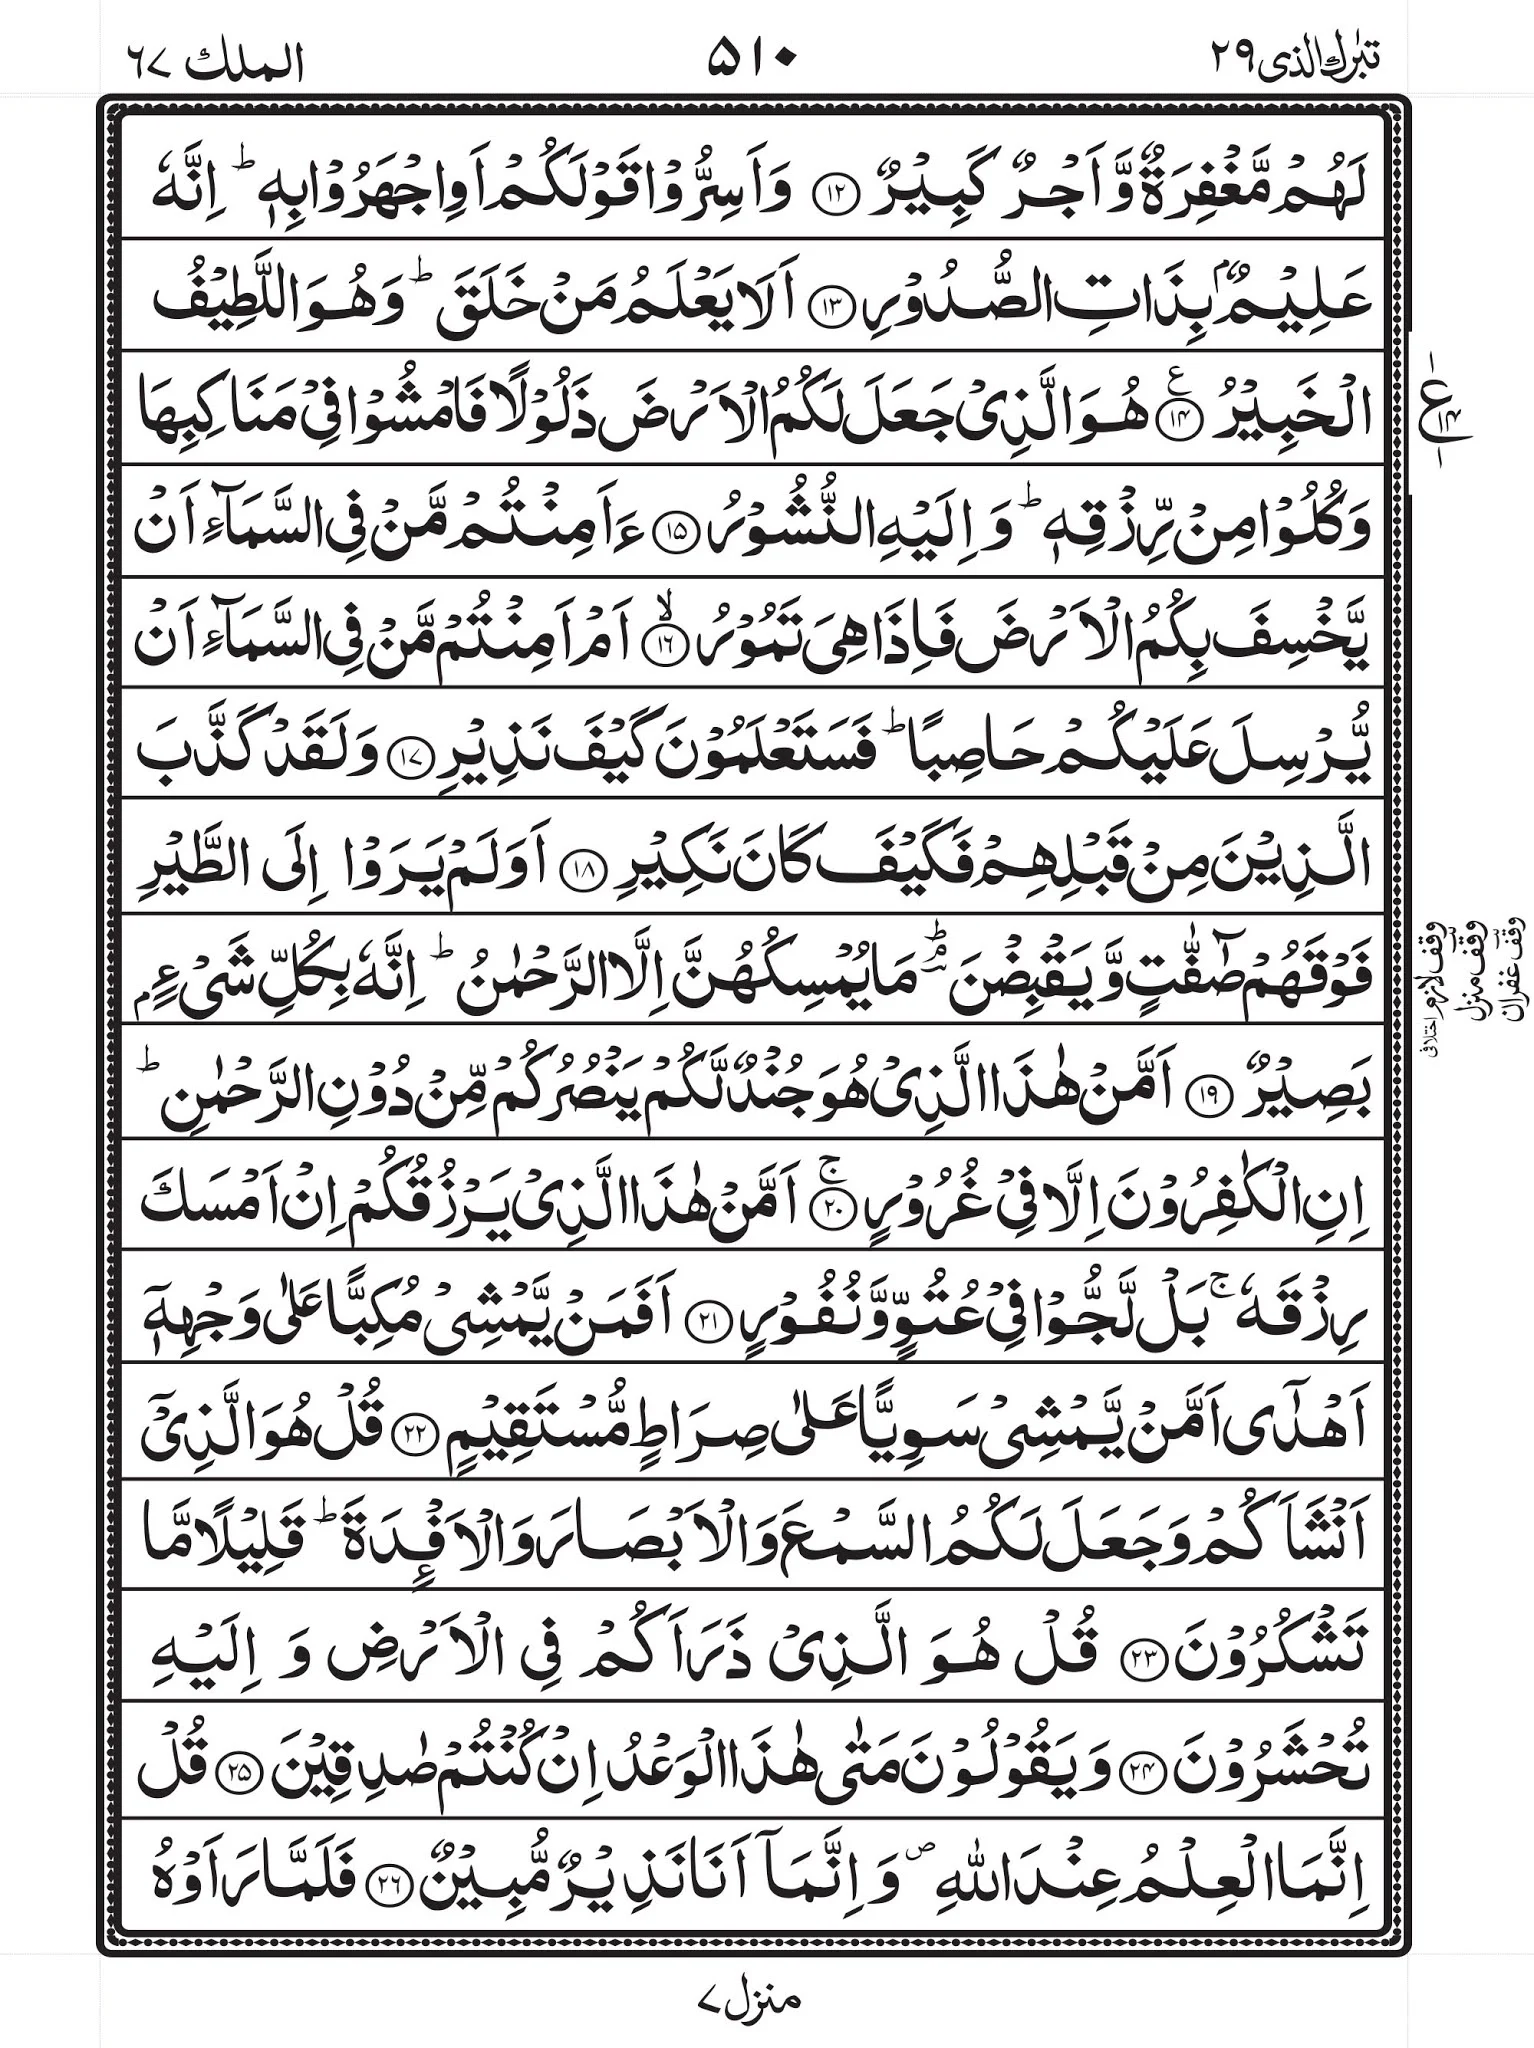 تبٰرك الذی ٢٩
٥١٠
الملك ٦٧
لَهُمْ مَّغْفِرَةٌ وَّ اَجْرٌ كَبِيْرٌ ﴿١٢﴾ وَ اَسِرُّوْا قَوْلَكُمْ اَوِ اجْهَرُوْا بِهٖ ؕ اِنَّهٗ
عَلِيْمٌۢ بِذَاتِ الصُّدُوْرِ ﴿١٣﴾ اَلَا يَعْلَمُ مَنْ خَلَقَ ؕ وَ هُوَ اللَّطِيْفُ
الْخَبِيْرُ ﴿١٤﴾ ع هُوَ الَّذِیْ جَعَلَ لَكُمُ الْاَرْضَ ذَلُوْلًا فَامْشُوْا فِیْ مَنَاكِبِهَا
وَ كُلُوْا مِنْ رِّزْقِهٖ ؕ وَ اِلَيْهِ النُّشُوْرُ ﴿١٥﴾ ءَاَمِنْتُمْ مَّنْ فِی السَّمَآءِ اَنْ
يَّخْسِفَ بِكُمُ الْاَرْضَ فَاِذَا هِیَ تَمُوْرُ ﴿١٦﴾ۙ اَمْ اَمِنْتُمْ مَّنْ فِی السَّمَآءِ اَنْ
يُّرْسِلَ عَلَيْكُمْ حَاصِبًا ؕ فَسَتَعْلَمُوْنَ كَيْفَ نَذِيْرِ ﴿١٧﴾ وَ لَقَدْ كَذَّبَ
الَّذِيْنَ مِنْ قَبْلِهِمْ فَكَيْفَ كَانَ نَكِيْرِ ﴿١٨﴾ اَوَ لَمْ يَرَوْا اِلَی الطَّيْرِ
فَوْقَهُمْ صٰٓفّٰتٍ وَّ يَقْبِضْنَ ؔۘؕ مَا يُمْسِكُهُنَّ اِلَّا الرَّحْمٰنُ ؕ اِنَّهٗ بِكُلِّ شَیْءٍۭ
بَصِيْرٌ ﴿١٩﴾ اَمَّنْ هٰذَا الَّذِیْ هُوَ جُنْدٌ لَّكُمْ يَنْصُرُكُمْ مِّنْ دُوْنِ الرَّحْمٰنِ ؕ
اِنِ الْكٰفِرُوْنَ اِلَّا فِیْ غُرُوْرٍ ﴿٢٠﴾ۚ اَمَّنْ هٰذَا الَّذِیْ يَرْزُقُكُمْ اِنْ اَمْسَكَ
رِزْقَهٗ ۚ بَلْ لَّجُّوْا فِیْ عُتُوٍّ وَّ نُفُوْرٍ ﴿٢١﴾ اَفَمَنْ يَّمْشِیْ مُكِبًّا عَلٰی وَجْهِهٖۤ
اَهْدٰۤی اَمَّنْ يَّمْشِیْ سَوِيًّا عَلٰی صِرَاطٍ مُّسْتَقِيْمٍ ﴿٢٢﴾ قُلْ هُوَ الَّذِیْۤ
اَنْشَاَكُمْ وَ جَعَلَ لَكُمُ السَّمْعَ وَ الْاَبْصَارَ وَ الْاَفْـِٕدَةَ ؕ قَلِيْلًا مَّا
تَشْكُرُوْنَ ﴿٢٣﴾ قُلْ هُوَ الَّذِیْ ذَرَاَكُمْ فِی الْاَرْضِ وَ اِلَيْهِ
تُحْشَرُوْنَ ﴿٢٤﴾ وَ يَقُوْلُوْنَ مَتٰی هٰذَا الْوَعْدُ اِنْ كُنْتُمْ صٰدِقِيْنَ ﴿٢٥﴾ قُلْ
اِنَّمَا الْعِلْمُ عِنْدَ اللّٰهِ ۪ وَ اِنَّمَاۤ اَنَا نَذِيْرٌ مُّبِيْنٌ ﴿٢٦﴾ فَلَمَّا رَاَوْهُ
١
ع ١٤
١
وقف لازم اختلافی
وقف منزل
وقف غفران
منزل ٧